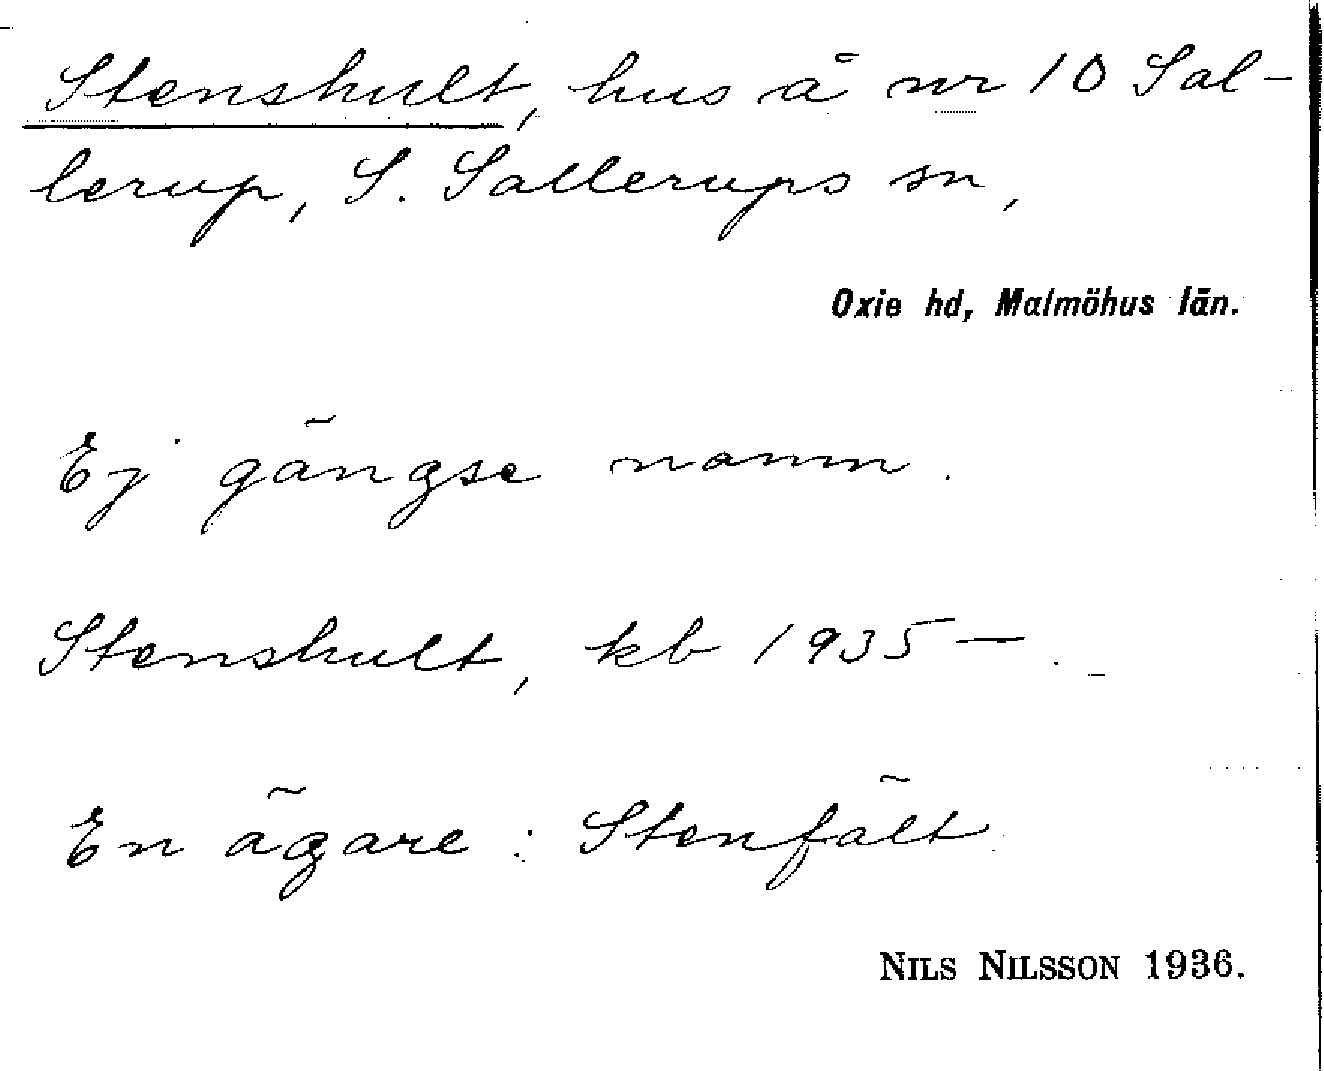 Stenshult, hus å nr 10 Sal-
lerup, S. Sallerups sn,
Oxie hd, Malmöhus län.
Ej gängse namn.
Stenshult, kb 1935—.
En ägare: Stenfält
NILS NILSSON 1936.